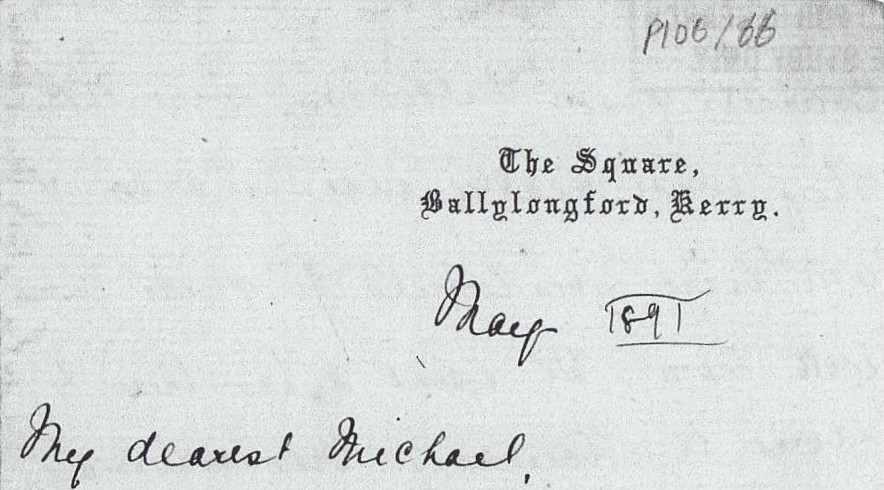 P106/66
The Square,
Ballylongford, Kerry.
May 1891
My dearest Michael,